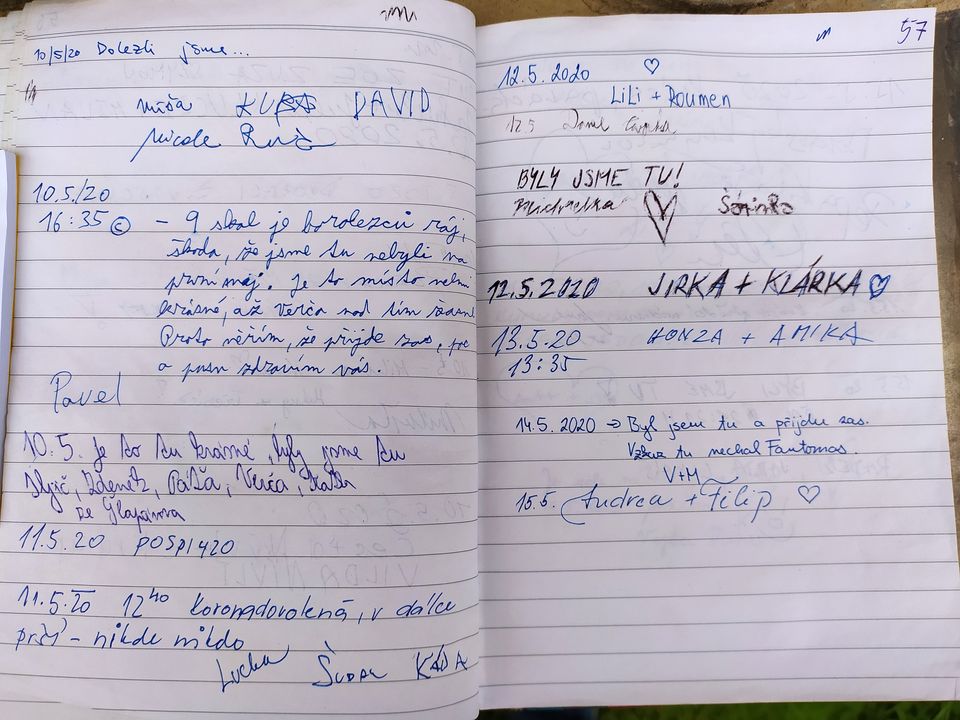 10/5/20 Dolezli jsme...
Míša DAVID
Nicole
10.5./20
16:35 © – 9 skal je borolezců ráj,
škoda, že jsme tu nebyli na
první máj. Je to místo velmi
krásné, až Verča nad tím žasne
Proto věřím, že přijde zas,
a pusu zdravím vás.
Pavel
10.5. Je to tu krásné, byly jsme tu
Zdeněk, Páťa, Verča,
ze Šlapanova
11.5.20 POSPI420
11.5.20 12⁴⁰ Koronadovolená, v dálce
prší – nikde nikdo
Lucka KÁĎA
57
12.5.2020 ♡
LiLi + Roumen
12.5
BYLY JSME TU!
Michaelka ♡ Šárinka
12.5.2020 JIRKA + KLÁRKA ♡
13.5.20 HONZA + AMIKA
13:35
14.5.2020 → Byl jsem tu a přijdu zas.
Vzkaz tu nechal Fantomas.
V+M
15.5. Andrea + Filip ♡